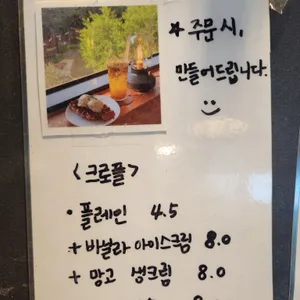 * 주문 시,
만들어드립니다.
<크로플>
• 플레인 4.5
+ 바닐라 아이스크림 8.0
+ 망고 생크림 8.0